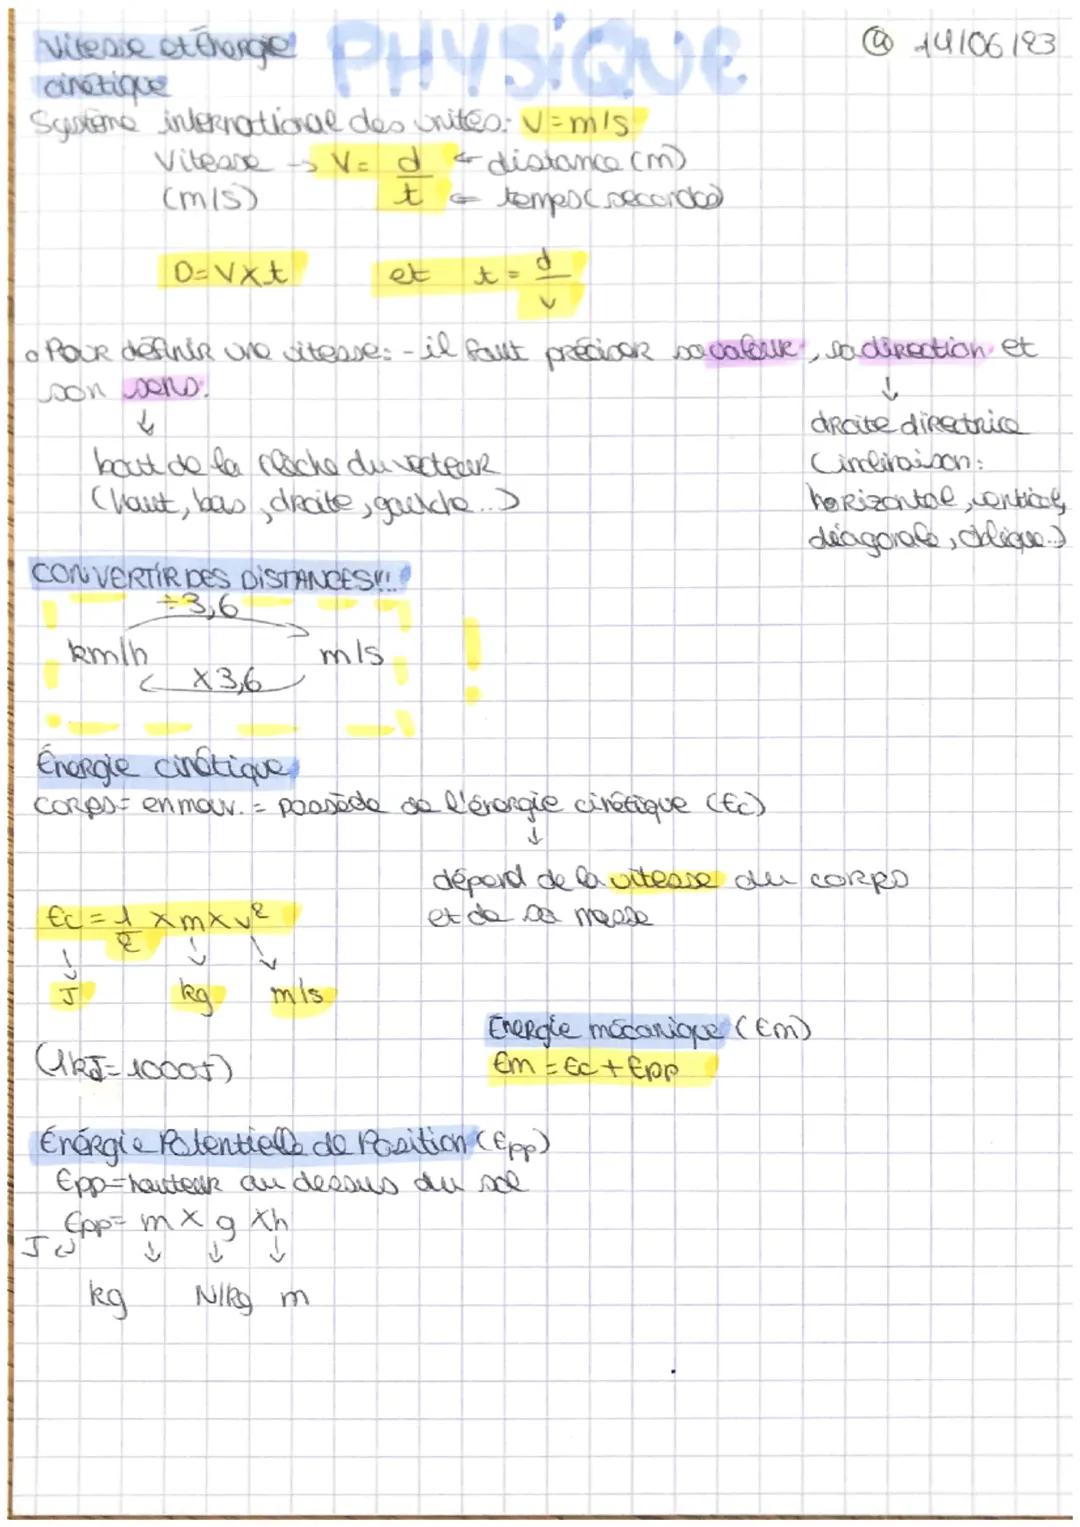 Vitesse et Énergie cinétique
PHYSIQUE
@ 14/06/23
Système international des unités: V=m/s
Vitesse → V= d/t ← distance (m)
(m/s) ← temps (secondes)
D=VXt et t = d/v
• Pour définir une vitesse: - il faut préciser sa valeur, sa direction et
son sens.
↓ ↓
bout de la flèche du vecteur
(haut, bas, droite, gauche...)
droite directrice
(inclinaison:
horizontal, vertical,
diagonale, oblique..)
CONVERTIR DES DISTANCES!!!
÷3,6
km/h m/s !
X3,6
Énergie cinétique
corps = en mouv. = possède de l'énergie cinétique (Ec)
↓
dépend de la vitesse du corps
et de sa masse
Ec = 1/2 x m x v²
J kg m/s
(1kJ=1000J)
Énergie mécanique (Em)
Em = Ec + Epp
Énérgie Potentielle de Position (Epp)
Epp=hauteur au dessus du sol
Epp= m x g xh
J
kg N/kg m